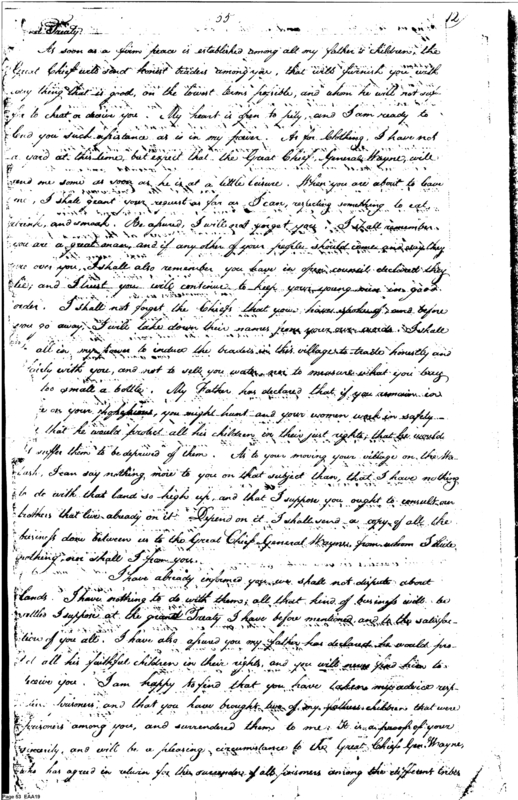 55 12
Treaty
As soon as a firm peace is established among all my father's children, the
Great Chief will send honest traders among you, that will furnish you with
any thing that is good, on the lowest terms possible, and whom he will not suf-
fer to cheat or deceive you. My heart is open to pity, and I am ready to
lend you such assistance as is in my power. As for Clothing, I have not
a yard at this time, but expect that the Great Chief General Wayne, will
send me some as soon as he is at a little leisure. When you are about to leave
me, I shall grant your request as far as I can, respecting something to eat,
drink, and smoak. Be assured, I will not forget you. I shall remember
you are a great man, and if any other of your people should come and say they
are over you, I shall also remember you have in open council declared they
lie; and I trust you will continue to keep your young men in good
order. I shall not forget the Chiefs that you have spoken of, and before
you go away, I will take down their names from your own words. I shall
all in my power to induce the traders in this village to trade honestly and
fairly with you, and not to sell you water, nor to measure what you buy
too small a bottle. My Father has declared that if you remain in
on your you might hunt and your women work in safety
that he would protect all his children in their just rights, that he would
suffer them to be deprived of them. As to your moving your village on the Wa-
bash, I can say nothing more to you on that subject than, that I have nothing
to do with that land so high up, and that I suppose you ought to consult our
brothers that live already on it. Depend on it I shall send a copy of all the
business done between us to the Great Chief General Wayne, from whom I hide
nothing nor shall I from you.
I have already informed you we shall not dispute about
lands. I have nothing to do with them; all that kind of business will be
settled I suppose at the grand Treaty I have before mentioned, and to the satisfac-
tion of you all. I have also assured you my father has declared he would pro-
tect all his faithful children in their rights, and you will find him to
receive you. I am happy to find that you have taken my advice resp-
prisoners, and that you have brought two of my fathers children that were
prisoners among you, and surrendered them to me. It is a proof of your
sincerity, and will be a pleasing circumstance to the Great Chief Gen. Wayne,
who has agreed in return for the surrender of all prisoners among the different tribes
Page 53 EAA19